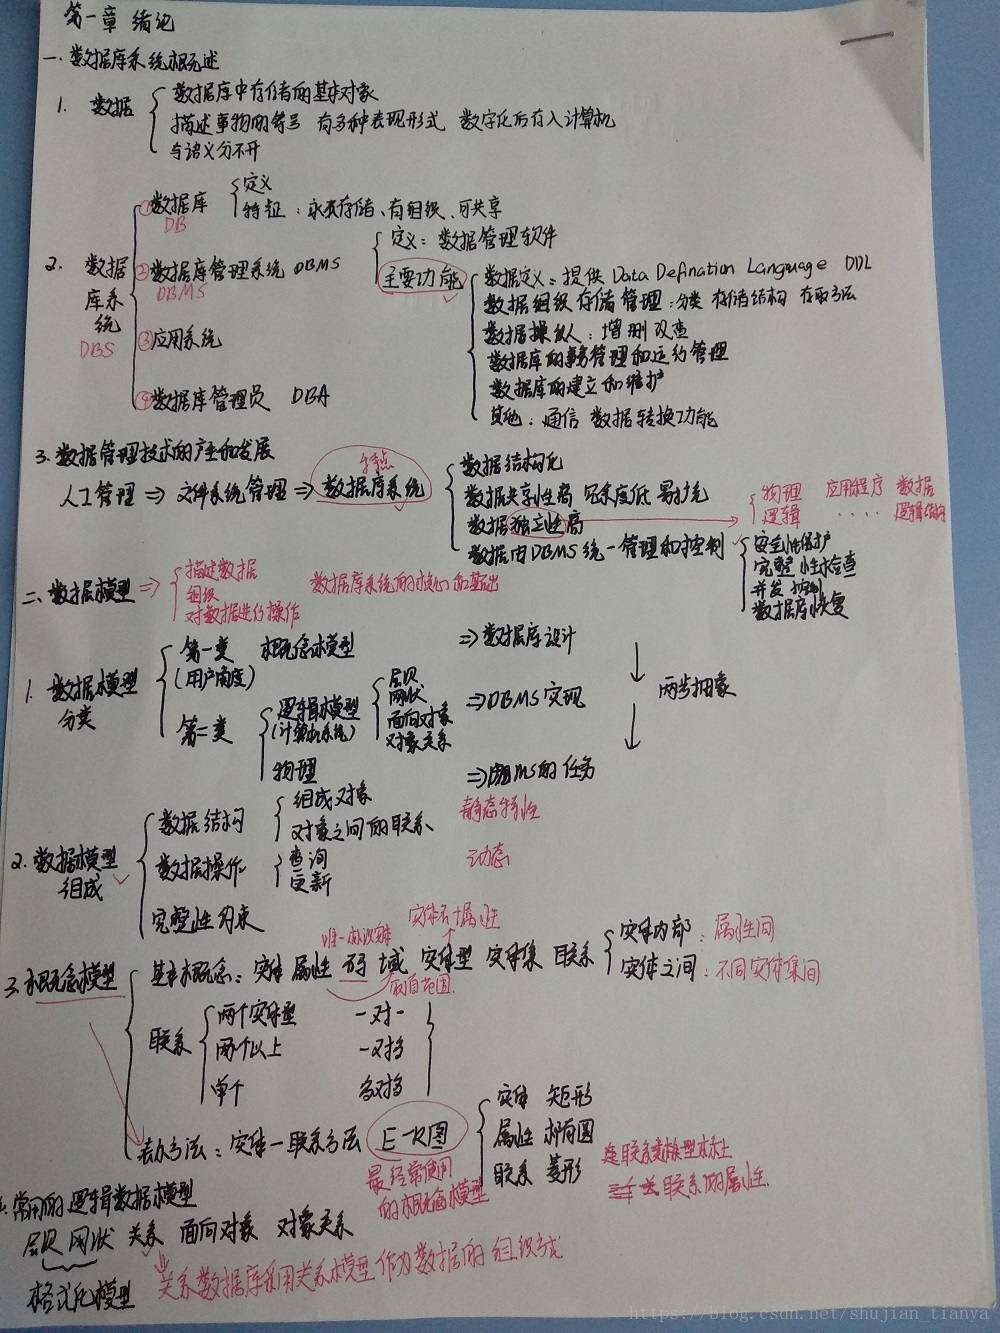 第一章 绪论
一.数据库系统概述
1. 数据
数据库中存储的基本对象
描述事物的符号 有多种表现形式 数字化后存入计算机
与语义分不开
2. 数据库系统 DBS
①数据库 DB
定义
特征：永久存储、有组织、可共享
②数据库管理系统 DBMS
DBMS
定义：数据管理软件
主要功能
数据定义：提供 Data Defination Language DDL
数据组织存储管理：分类 存储结构 存取方法
数据操纵：增删改查
数据库的事务管理和运行管理
数据库的建立和维护
其他：通信 数据转换功能
③应用系统
④数据库管理员 DBA
3.数据管理技术的产生和发展
人工管理 ⇒ 文件系统管理 ⇒ 数据库系统
特点
数据结构化
数据共享性高 冗余度低 易扩充
数据独立性高
物理 应用程序 数据
逻辑 ···· 逻辑结构
数据由DBMS统一管理和控制
安全性保护
完整性检查
并发控制
数据库恢复
二、数据模型 ⇒
描述数据
组织
对数据进行操作
数据库系统的核心和基础
1. 数据模型分类
第一类 概念模型 ⇒数据库设计
(用户角度)
第二类
逻辑模型
(计算机系统)
层次
网状
面向对象
对象关系
⇒DBMS实现
物理 ⇒DBMS的任务
两步抽象
2.数据模型组成
数据结构
组成对象
对象之间的联系
静态特性
数据操作
查询
更新
动态
完整性约束
3.概念模型
基本概念：实体 属性 码 域 实体型 实体集 联系
唯一标识实体
取值范围
实体名+属性
实体内部：属性间
实体之间：不同实体集间
联系
两个实体型 一对一
两个以上 一对多
单个 多对多
表示方法：实体一联系方法 E-R图
最经常使用的概念模型
实体 矩形
属性 椭圆
联系 菱形
常用的逻辑数据模型
层次 网状 关系 面向对象 对象关系
格式化模型
关系数据库采用关系模型作为数据的组织方式
https://blog.csdn.net/shujian_tianya